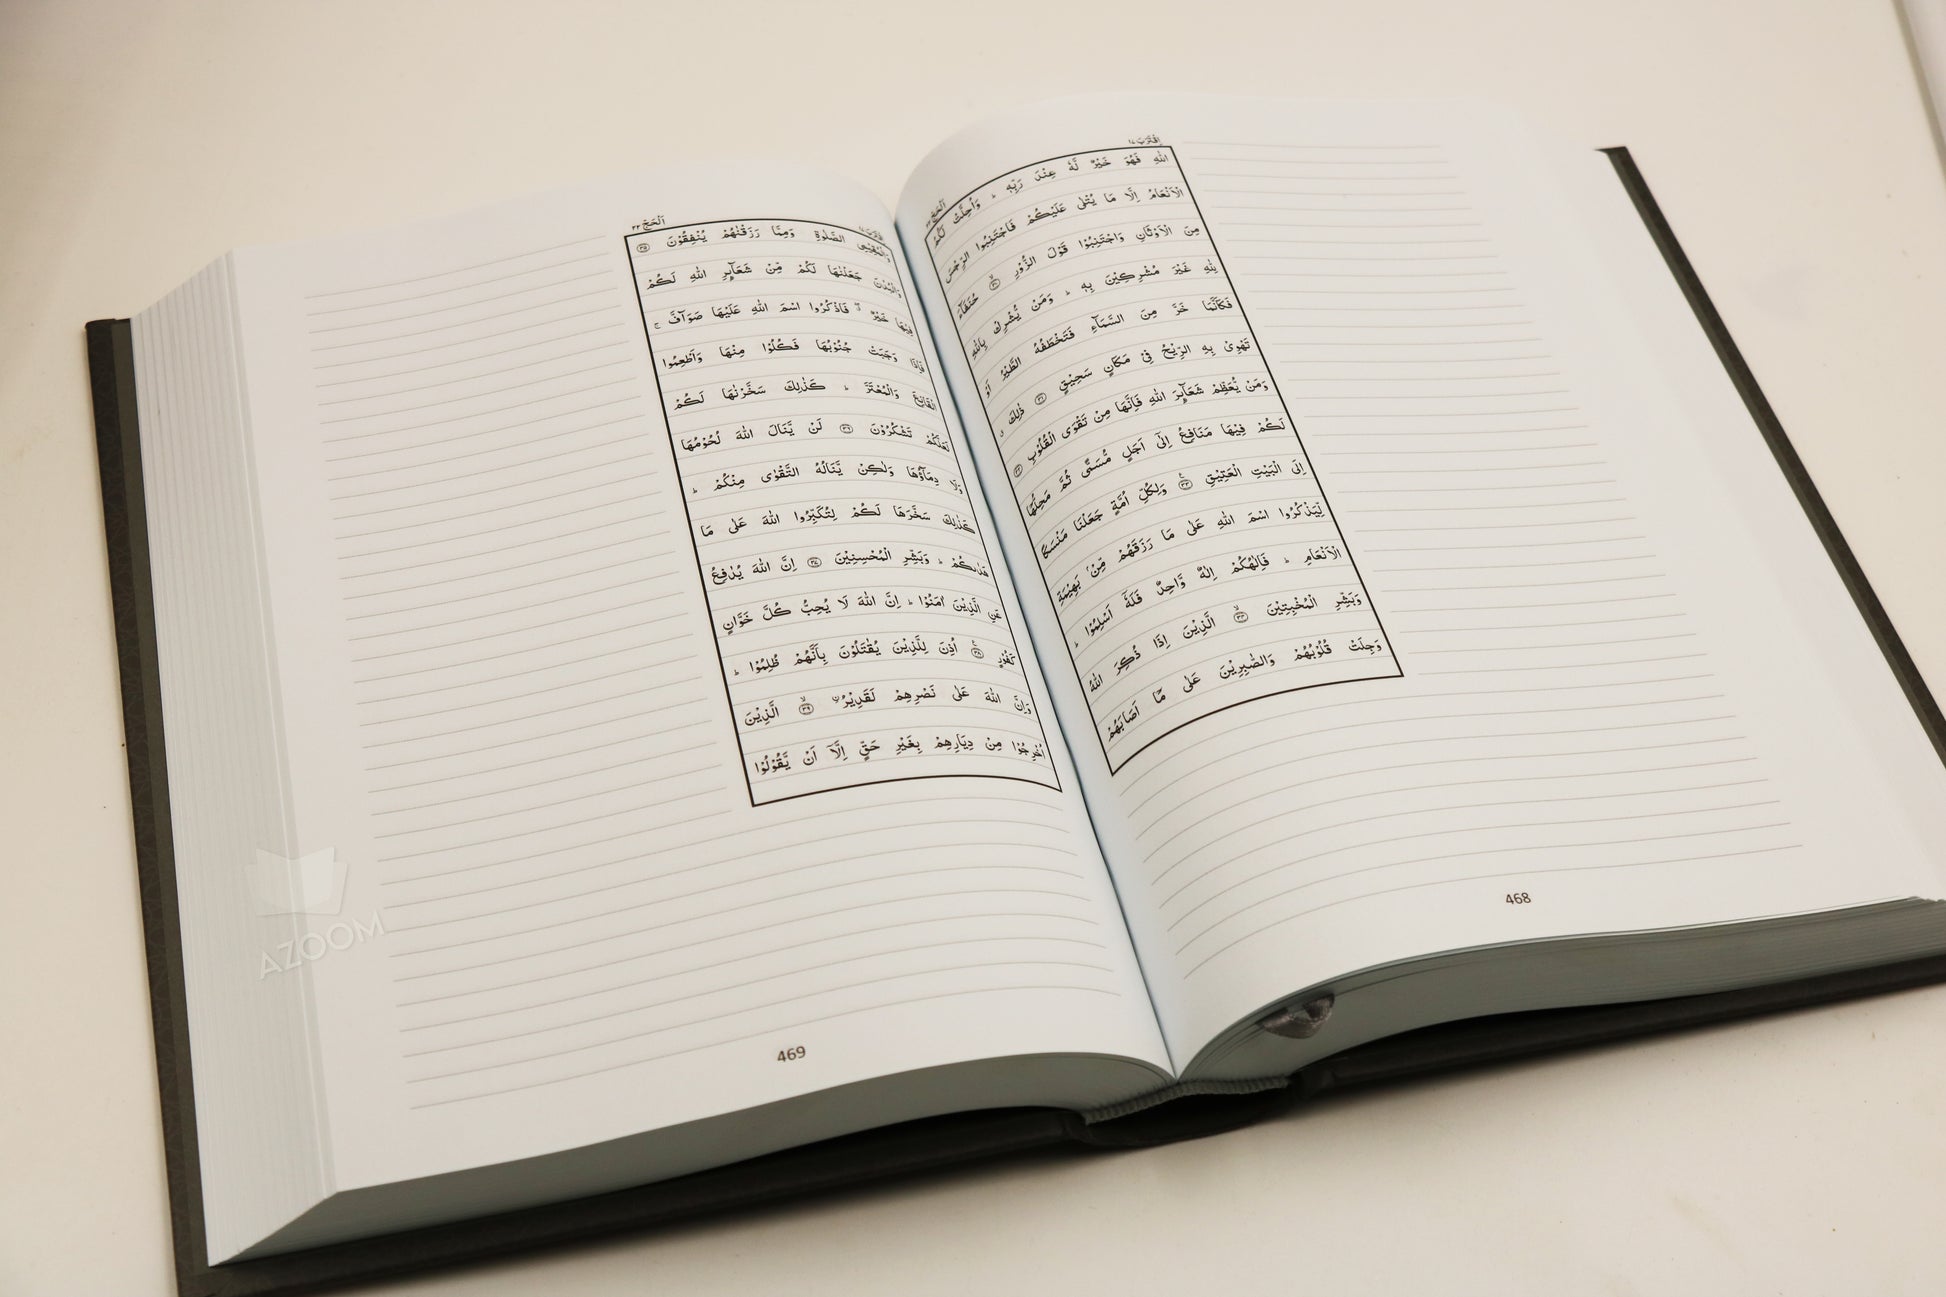 اِقْتَرَبَ ١٧
اَلْحَجّ ٢٢
اللّٰهِ فَهُوَ خَيْرٌ لَّهٗ عِنْدَ رَبِّهٖ ؕ وَاُحِلَّتْ لَكُمُ
الْاَنْعَامُ اِلَّا مَا يُتْلٰى عَلَيْكُمْ فَاجْتَنِبُوا الرِّجْسَ
مِنَ الْاَوْثَانِ وَاجْتَنِبُوْا قَوْلَ الزُّوْرِ ۙ﴿٣٠﴾ حُنَفَآءَ
لِلّٰهِ غَيْرَ مُشْرِكِيْنَ بِهٖ ؕ وَمَنْ يُّشْرِكْ بِاللّٰهِ
فَكَاَنَّمَا خَرَّ مِنَ السَّمَآءِ فَتَخْطَفُهُ الطَّيْرُ اَوْ
تَهْوِىْ بِهِ الرِّيْحُ فِىْ مَكَانٍ سَحِيْقٍ ﴿٣١﴾ ذٰلِكَ ۗ
وَمَنْ يُّعَظِّمْ شَعَآئِرَ اللّٰهِ فَاِنَّهَا مِنْ تَقْوَى الْقُلُوْبِ ﴿٣٢﴾
لَكُمْ فِيْهَا مَنَافِعُ اِلٰٓى اَجَلٍ مُّسَمًّى ثُمَّ مَحِلُّهَاۤ
اِلَى الْبَيْتِ الْعَتِيْقِ ﴿٣٣﴾ وَلِكُلِّ اُمَّةٍ جَعَلْنَا مَنْسَكًا
لِّيَذْكُرُوا اسْمَ اللّٰهِ عَلٰى مَا رَزَقَهُمْ مِّنْۢ بَهِيْمَةِ
الْاَنْعَامِ ؕ فَاِلٰهُكُمْ اِلٰهٌ وَّاحِدٌ فَلَهٗۤ اَسْلِمُوْا ؕ
وَبَشِّرِ الْمُخْبِتِيْنَ ۙ﴿٣٤﴾ الَّذِيْنَ اِذَا ذُكِرَ اللّٰهُ
وَجِلَتْ قُلُوْبُهُمْ وَالصّٰبِرِيْنَ عَلٰى مَاۤ اَصَابَهُمْ
468
اَلْحَجّ ٢٢
وَالْمُقِيْمِى الصَّلٰوةِ وَمِمَّا رَزَقْنٰهُمْ يُنْفِقُوْنَ ﴿٣٥﴾
وَالْبُدْنَ جَعَلْنٰهَا لَكُمْ مِّنْ شَعَآئِرِ اللّٰهِ لَكُمْ
فِيْهَا خَيْرٌ ۖ فَاذْكُرُوا اسْمَ اللّٰهِ عَلَيْهَا صَوَآفَّ ۚ
فَاِذَا وَجَبَتْ جُنُوْبُهَا فَكُلُوْا مِنْهَا وَاَطْعِمُوا
الْقَانِعَ وَالْمُعْتَرَّ ؕ كَذٰلِكَ سَخَّرْنٰهَا لَكُمْ
لَعَلَّكُمْ تَشْكُرُوْنَ ﴿٣٦﴾ لَنْ يَّنَالَ اللّٰهَ لُحُوْمُهَا
وَلَا دِمَآؤُهَا وَلٰكِنْ يَّنَالُهُ التَّقْوٰى مِنْكُمْ ؕ
كَذٰلِكَ سَخَّرَهَا لَكُمْ لِتُكَبِّرُوا اللّٰهَ عَلٰى مَا
هَدٰىكُمْ ؕ وَبَشِّرِ الْمُحْسِنِيْنَ ﴿٣٧﴾ اِنَّ اللّٰهَ يُدٰفِعُ
عَنِ الَّذِيْنَ اٰمَنُوْا ؕ اِنَّ اللّٰهَ لَا يُحِبُّ كُلَّ خَوَّانٍ
كَفُوْرٍ ﴿٣٨﴾ اُذِنَ لِلَّذِيْنَ يُقٰتَلُوْنَ بِاَنَّهُمْ ظُلِمُوْا ؕ
وَاِنَّ اللّٰهَ عَلٰى نَصْرِهِمْ لَقَدِيْرُ ۙ﴿٣٩﴾ الَّذِيْنَ
اُخْرِجُوْا مِنْ دِيَارِهِمْ بِغَيْرِ حَقٍّ اِلَّاۤ اَنْ يَّقُوْلُوْا
469
AZOOM